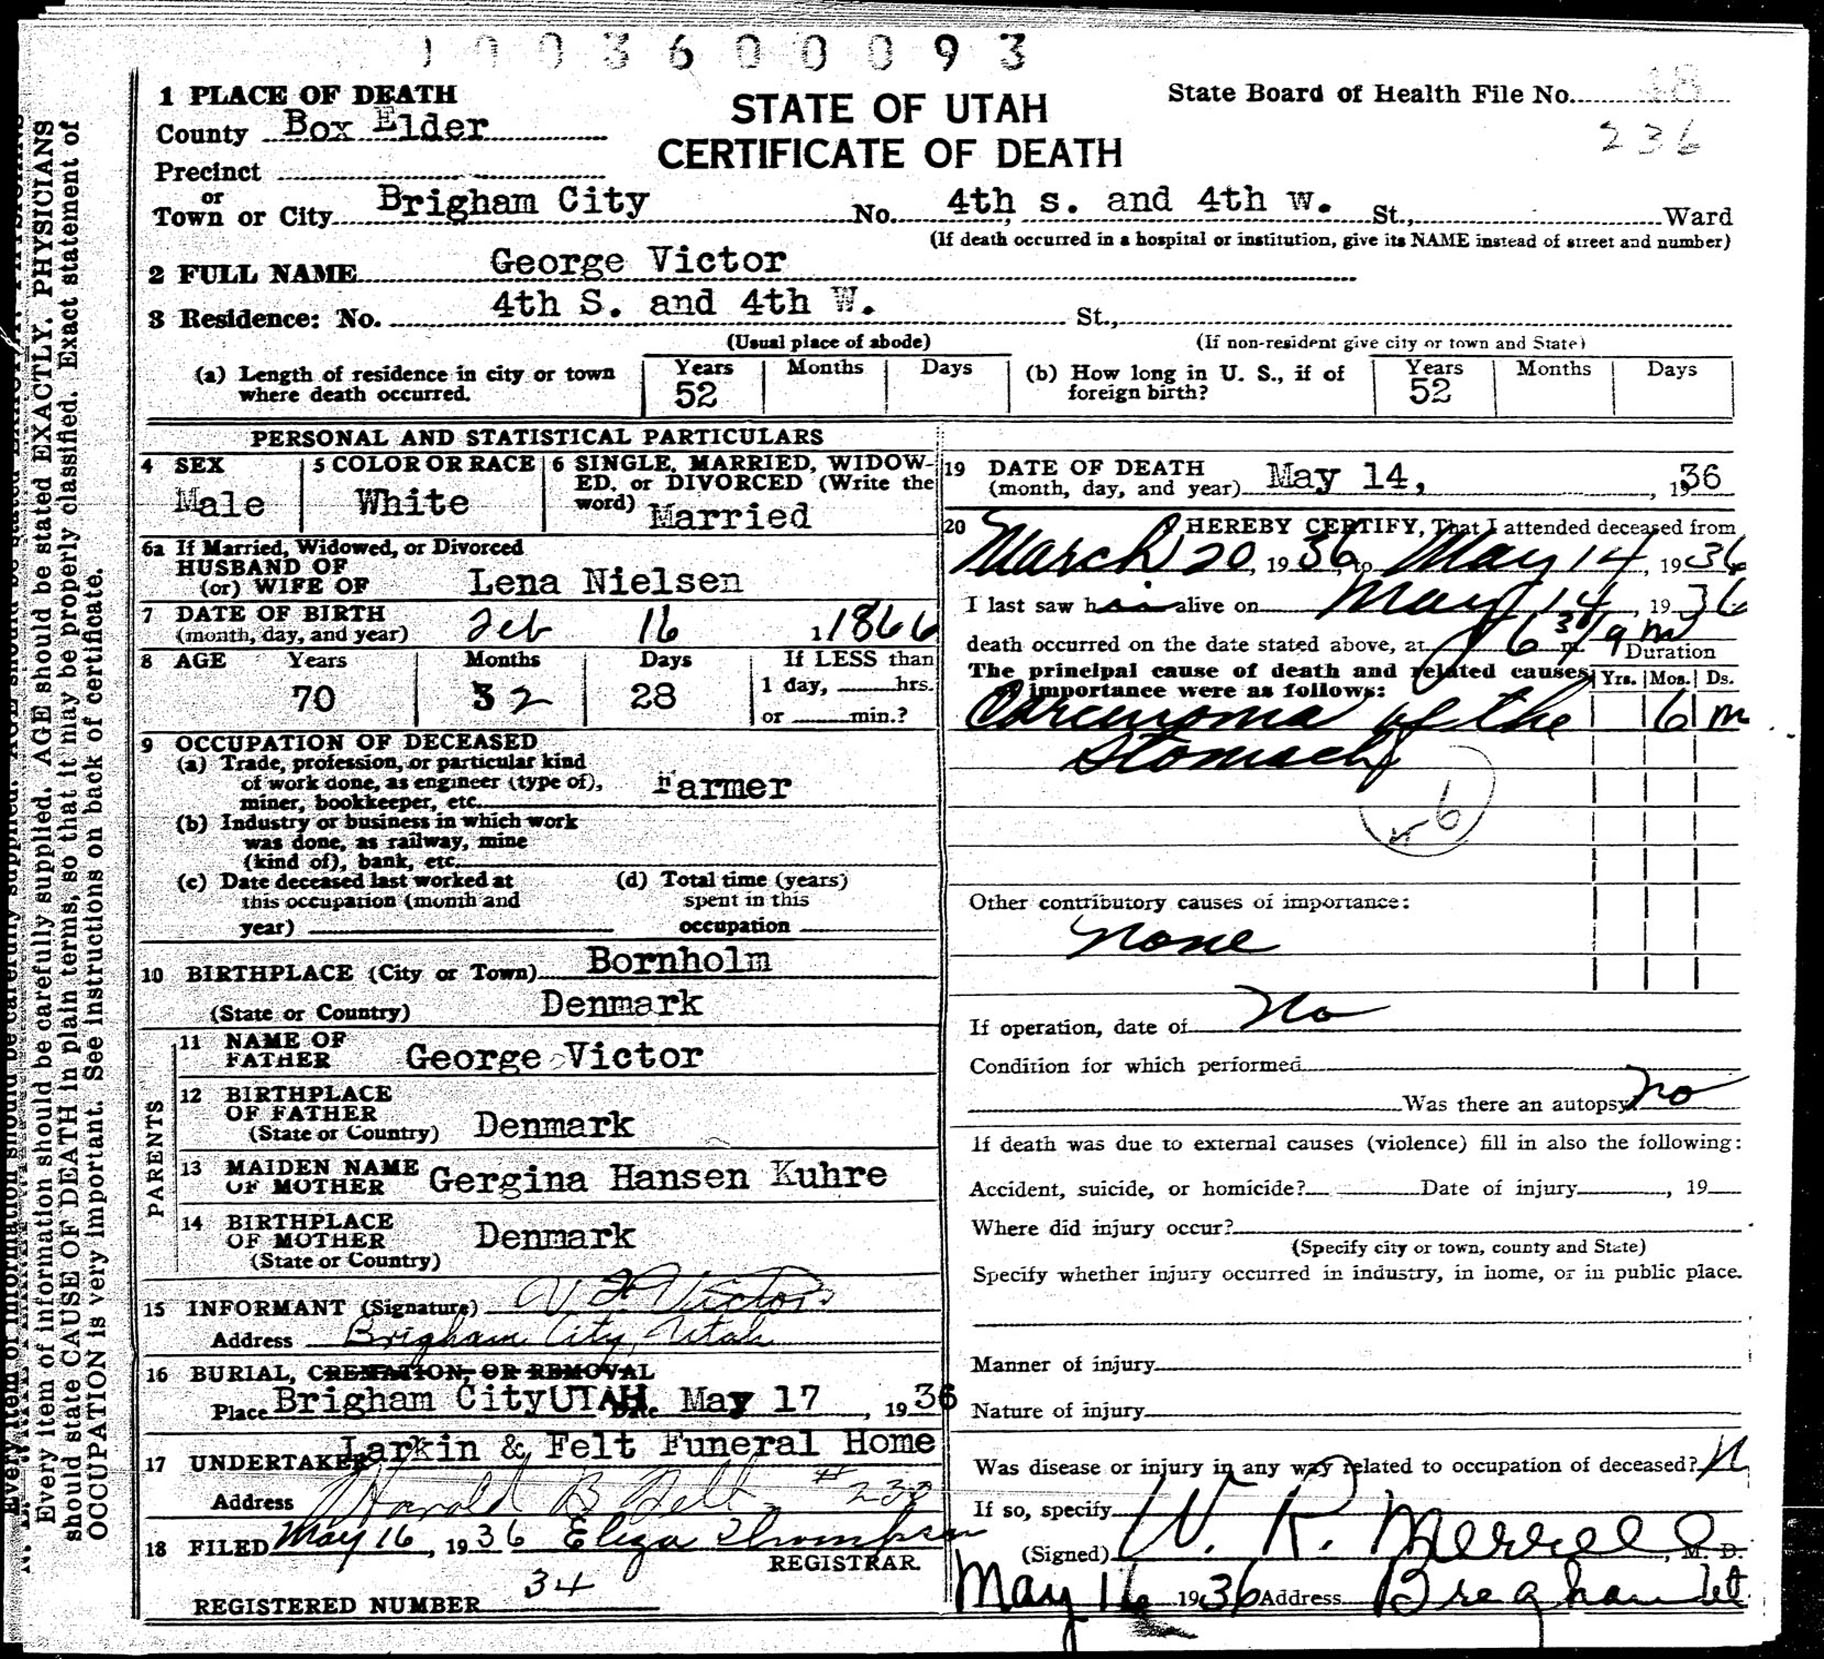 1003600093
1 PLACE OF DEATH
STATE OF UTAH
CERTIFICATE OF DEATH
State Board of Health File No. 18
236
County Box Elder
Precinct
or
Town or City Brigham City No. 4th s. and 4th w. St., Ward
(If death occurred in a hospital or institution, give its NAME instead of street and number)
2 FULL NAME George Victor
3 Residence: No. 4th S. and 4th W. St.,
(Usual place of abode) (If non-resident give city or town and State)
(a) Length of residence in city or town where death occurred. Years 52 Months Days
(b) How long in U. S., if of foreign birth? Years 52 Months Days
PERSONAL AND STATISTICAL PARTICULARS
4 SEX Male
5 COLOR OR RACE White
6 SINGLE, MARRIED, WIDOWED, or DIVORCED (Write the word) Married
6a If Married, Widowed, or Divorced
HUSBAND OF
(or) WIFE OF Lena Nielsen
7 DATE OF BIRTH
(month, day, and year) Feb 16, 1866
8 AGE Years Months Days If LESS than
70 32 28 1 day, hrs.
or min.?
9 OCCUPATION OF DECEASED
(a) Trade, profession, or particular kind
of work done, as engineer (type of),
miner, bookkeeper, etc. Farmer
(b) Industry or business in which work
was done, as railway, mine
(kind of), bank, etc.
(c) Date deceased last worked at
this occupation (month and
year)
(d) Total time (years)
spent in this
occupation
10 BIRTHPLACE (City or Town) Bornholm
(State or Country) Denmark
PARENTS
11 NAME OF
FATHER George Victor
12 BIRTHPLACE
OF FATHER
(State or Country) Denmark
13 MAIDEN NAME
OF MOTHER Gergina Hansen Kuhre
14 BIRTHPLACE
OF MOTHER Denmark
(State or Country)
15 INFORMANT (Signature) V. F. Victor
Address Brigham City, Utah
16 BURIAL, CREMATION, OR REMOVAL
Place Brigham City UTAH. Date May 17, 1936
17 UNDERTAKER Larkin & Felt Funeral Home
Address Harold B Felt # 238
18 FILED May 16, 1936 Eliza Thompson
REGISTRAR.
REGISTERED NUMBER 34
19 DATE OF DEATH
(month, day, and year) May 14, 1936
20 I HEREBY CERTIFY, That I attended deceased from
March 20, 1936, to May 14, 1936
I last saw him alive on May 14, 1936
death occurred on the date stated above, at 6 30 a m m.
Duration
The principal cause of death and related causes
of importance were as follows: Yrs. Mos. Ds.
Carcinoma of the 6 m
Stomach
46
Other contributory causes of importance:
None
If operation, date of No
Condition for which performed
Was there an autopsy? no
If death was due to external causes (violence) fill in also the following:
Accident, suicide, or homicide? Date of injury , 19
Where did injury occur?
(Specify city or town, county and State)
Specify whether injury occurred in industry, in home, or in public place.
Manner of injury
Nature of injury
Was disease or injury in any way related to occupation of deceased? N
If so, specify
(Signed) W. R. Merrell, M. D.
May 16 1936 Address Brigham Ut
Every item of information should be carefully supplied. AGE should be stated EXACTLY. PHYSICIANS
should state CAUSE OF DEATH in plain terms, so that it may be properly classified. Exact statement of
OCCUPATION is very important. See instructions on back of certificate.